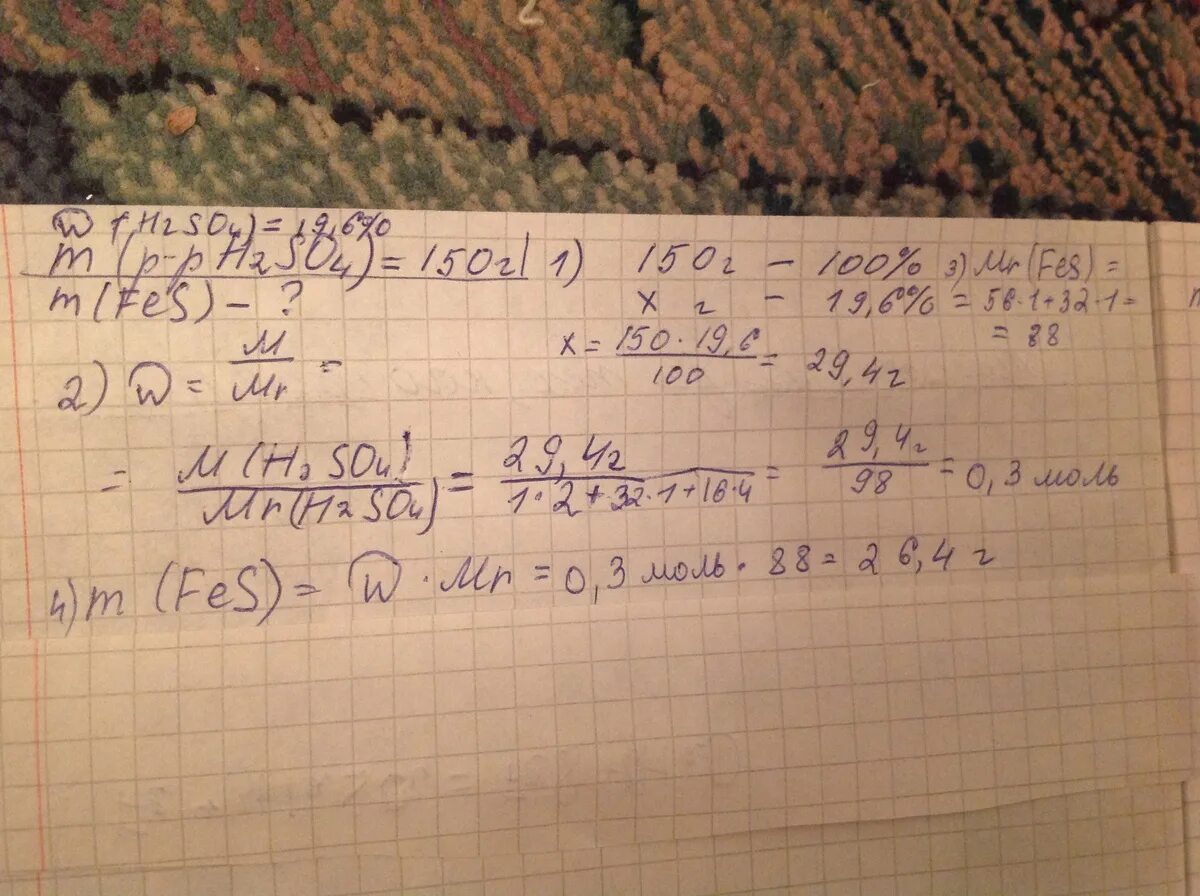 W (H2SO4) = 19,6%
m (р-р H2SO4) = 150г
m (FeS) - ?
1) 150г - 100%
x г - 19,6%
x = 150 · 19,6 / 100 = 29,4г
3) Mr (FeS) =
= 56·1+32·1=
= 88
2) W = M / Mr =
= M (H2SO4) / Mr (H2SO4) = 29,4г / 1·2+32·1+16·4 = 29,4г / 98 = 0,3 моль
4) m (FeS) = W · Mr = 0,3 моль · 88 = 26,4 г